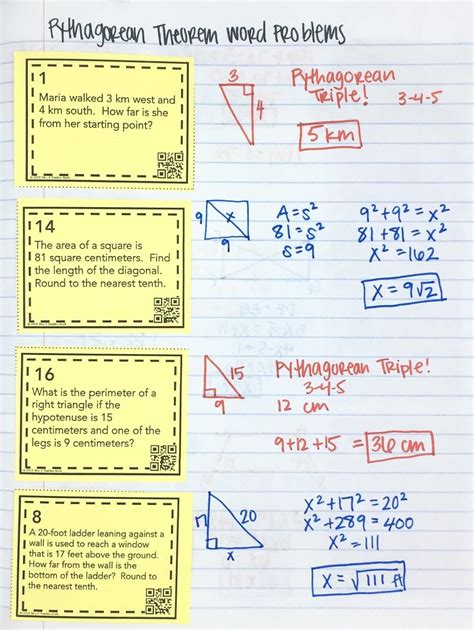 Pythagorean Theorem Word Problems
1
Maria walked 3 km west and
4 km south. How far is she
from her starting point?
3
4
Pythagorean
Triple! 3-4-5
5 km
14
The area of a square is
81 square centimeters. Find
the length of the diagonal.
Round to the nearest tenth.
9
x
9
A=s²
81=s²
s=9
9²+9²=x²
81+81=x²
x²=162
x=9√2
16
What is the perimeter of a
right triangle if the
hypotenuse is 15
centimeters and one of the
legs is 9 centimeters?
15
9
Pythagorean Triple!
3-4-5
12 cm
9+12+15=36 cm
8
A 20-foot ladder leaning against a
wall is used to reach a window
that is 17 feet above the ground.
How far from the wall is the
bottom of the ladder? Round to
the nearest tenth.
17
20
x
x²+17²=20²
x²+289=400
x²=111
x=√111 ft